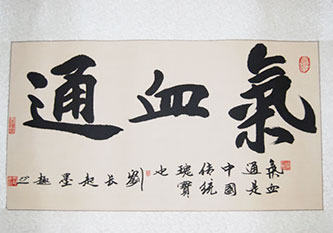 氣血通
氣血
通是
中國
传统
瑰寶
也
劉長起墨趣